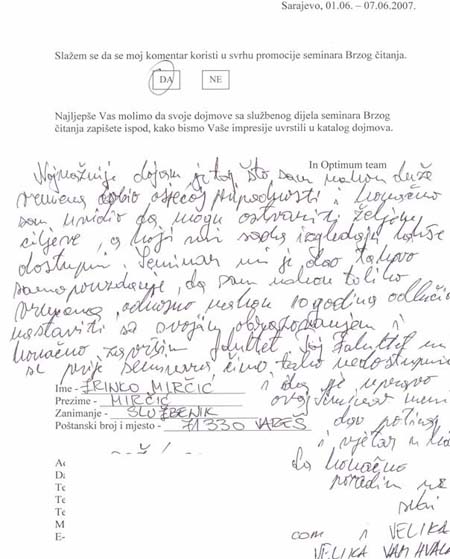 Sarajevo, 01.06. – 07.06.2007.
Slažem se da se moj komentar koristi u svrhu promocije seminara Brzog čitanja.
DA NE
Najljepše Vas molimo da svoje dojmove sa službenog dijela seminara Brzog
čitanja zapišete ispod, kako bismo Vaše impresije uvrstili u katalog dojmova.
In Optimum team
dojam je taj što sam nakon duže
vremena dobio osjećaj pripadnosti i konačno
sam uvidio da mogu ostvariti željene
ciljeve, a koji mi sada izgledaju
dostupni. Seminar mi je dao takvo
samopouzdanje, da sam nakon toliko
vremena, odnosno nakon 10 godina odlučio
nastaviti sa svojim obrazovanjem i
konačno završim fakultet, taj fakultet mi
se prije seminara činio teško nedostupnim
Ime - ZRINKO MIRČIĆ i da je upravo
Prezime - MIRČIĆ ovaj seminar meni
Zanimanje - SLUŽBENIK dao poticaj
Poštanski broj i mjesto - 71330 VAREŠ i vjetar u
da konačno
poradim na
sebi
com i VELIKA
VELIKA VAM HVALA